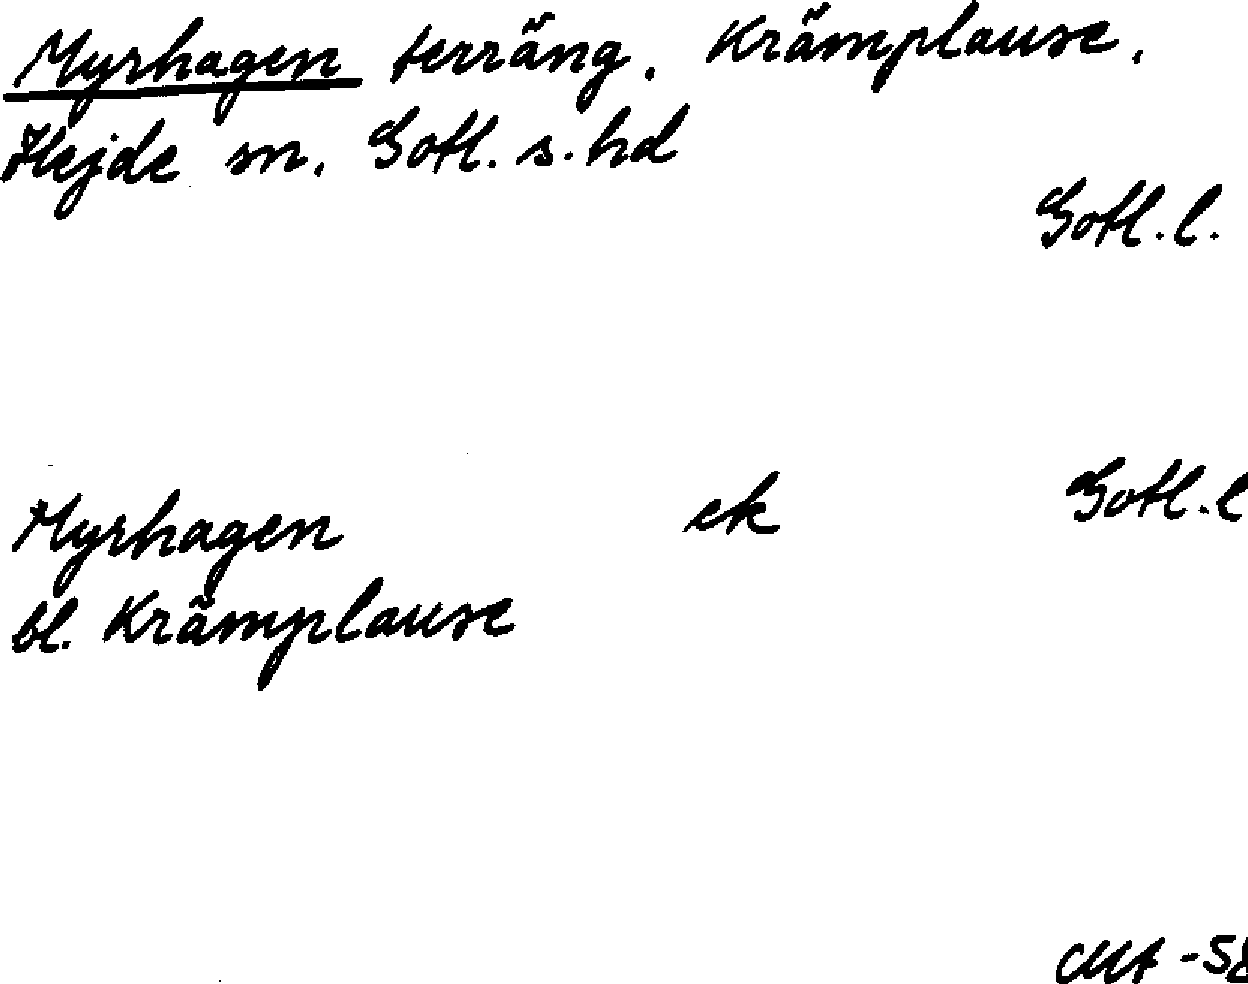 Myrhagen terräng, Krämplause,
Hejde sn, Gotl. s. hd
Gotl. l.
Myrhagen ek Gotl. l
bl. Krämplause